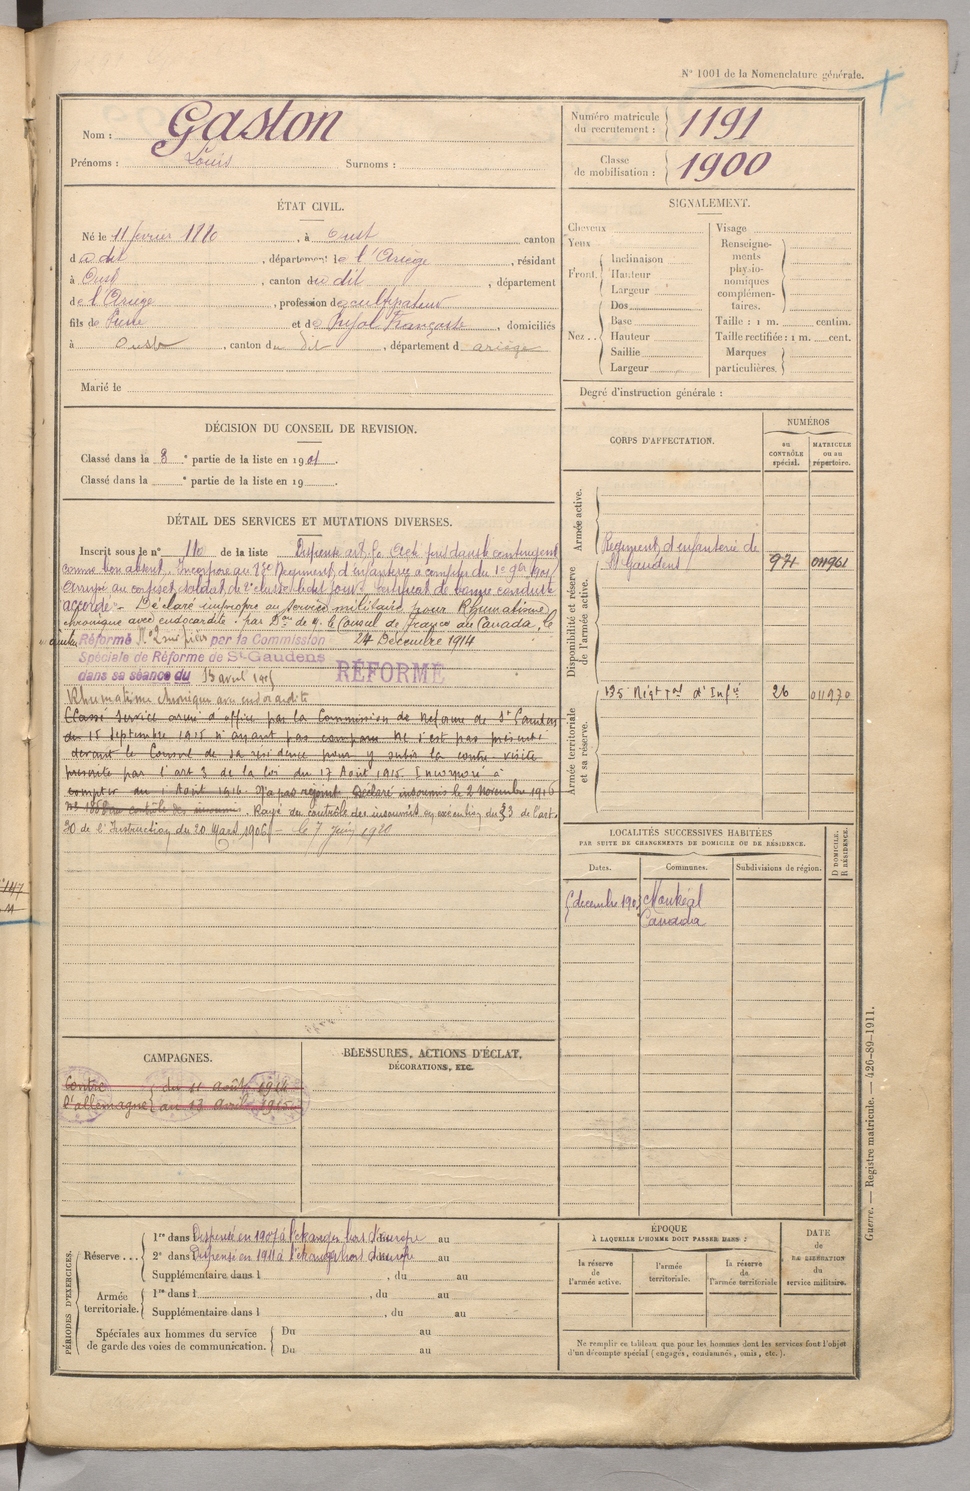 N° 1001 de la Nomenclature générale.
Nom : Gaston
Prénoms : Louis Surnoms :
Numéro matricule du recrutement : 1191
Classe de mobilisation : 1900
ÉTAT CIVIL.
Né le 11 février 1880, à Oust canton
d dit, département de l'Ariège, résidant
à Oust, canton du dit, département
de l'Ariège, profession de cultivateur
fils de Pierre et de Pujol Françoise, domiciliés
à Oust, canton du dit, département d ariège
Marié le
SIGNALEMENT.
Cheveux
Yeux
Front. Inclinaison
Hauteur
Largeur
Nez .. Dos
Base
Hauteur
Saillie
Largeur
Visage
Renseignements physionomiques complémentaires.
Taille : 1 m. centim.
Taille rectifiée : 1 m. cent.
Marques particulières.
Degré d'instruction générale :
DÉCISION DU CONSEIL DE REVISION.
Classé dans la 3e partie de la liste en 1901.
Classé dans la e partie de la liste en 19
DÉTAIL DES SERVICES ET MUTATIONS DIVERSES.
Inscrit sous le n° 110 de la liste Dispensé art. dans le contingent
comme bon absent. Incorporé au Régiment d'infanterie à compter du 1901
Arrivé au corps et soldat de 2e classe le dit jour. Certificat de bonne conduite
accordé. Déclaré impropre au service militaire pour Rhumatisme
chronique avec endocardite par Don de M. le Consul de France au Canada, le
24 Décembre 1914
Réformé N°2 par la Commission
Spéciale de Réforme de St Gaudens
dans sa séance du 13 avril 1915
RÉFORMÉ
Rhumatisme chronique avec endocardite
Classé Service armé d'office par la Commission de Réforme de St Gaudens
du 15 Septembre 1915 n'ayant pas comparu ne s'est pas présenté
devant le Consul de sa résidence pour y subir la contre-visite
prescrite par l'art 3 de la loi du 17 Août 1915. Incorporé à
compter du 1 Août 1916. N'a pas rejoint. Déclaré insoumis le 2 Novembre 1916
contrôle des insoumis. Rayé du contrôle des insoumis en exécution du § 3 de l'art.
30 de l'Instruction du 20 Mars 1906 le 7 Juin 1920
CORPS D'AFFECTATION.
NUMÉROS
au CONTRÔLE spécial.
MATRICULE ou au répertoire.
Armée active.
Disponibilité et réserve de l'armée active.
Régiment d'infanterie de St Gaudens 971 011961
Armée territoriale et sa réserve.
135 Régt Tal d'Infie 26 011970
LOCALITÉS SUCCESSIVES HABITÉES
PAR SUITE DE CHANGEMENTS DE DOMICILE OU DE RÉSIDENCE.
D DOMICILE.
R RÉSIDENCE.
Dates. Communes. Subdivisions de région.
décembre Montréal
Canada
CAMPAGNES.
Contre l'allemagne du 11 août 1914
au 13 Avril 1915
BLESSURES, ACTIONS D'ÉCLAT,
DÉCORATIONS, ETC.
PÉRIODES D'EXERCICES.
Réserve ... 1re dans Dispensé en 1907 à l'étranger hors d'europe au
2e dans Dispensé en 1911 à l'étranger hors d'europe au
Supplémentaire dans l , du au
Armée territoriale. 1re dans l , du au
Supplémentaire dans l , du au
Spéciales aux hommes du service de garde des voies de communication. Du au
Du au
ÉPOQUE
À LAQUELLE L'HOMME DOIT PASSER DANS :
la réserve de l'armée active.
l'armée territoriale.
la réserve de l'armée territoriale
DATE
DE LA LIBÉRATION
du
service militaire.
Ne remplir ce tableau que pour les hommes dont les services font l'objet
d'un décompte spécial (engagés, condamnés, omis, etc.).
Guerre. — Registre matricule. — 426-89-1911.